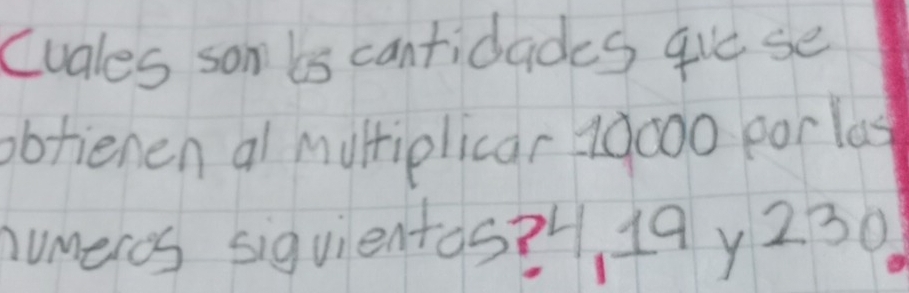 Cuales son las cantidades que se
obtienen al multiplicar 10,000 por las
numeros siguientos? 4, 19 y 230.